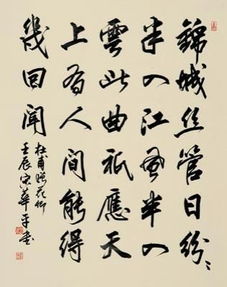 錦城丝管日紛〻
半入江風半入
雲此曲祇應天
上有人間能得
幾回聞
杜甫贈花卿
壬辰 華平書